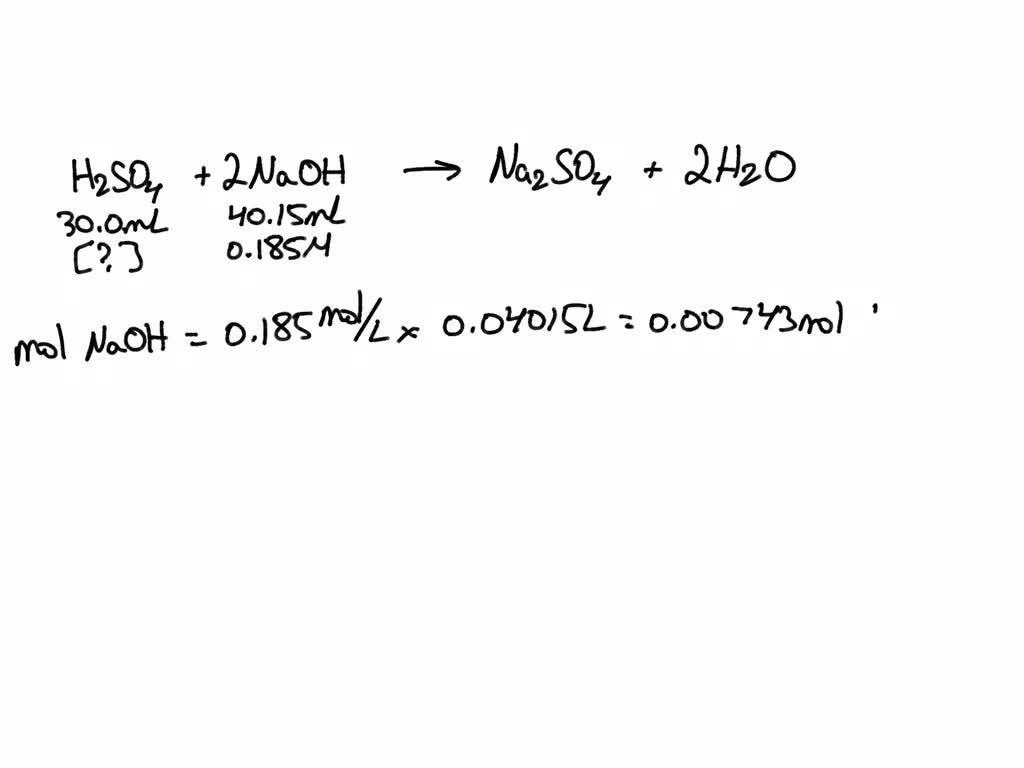 H₂SO₄ + 2NaOH → Na₂SO₄ + 2H₂O
30.0mL 40.15mL
[?] 0.185M
mol NaOH = 0.185 mol/L × 0.04015L = 0.00743mol